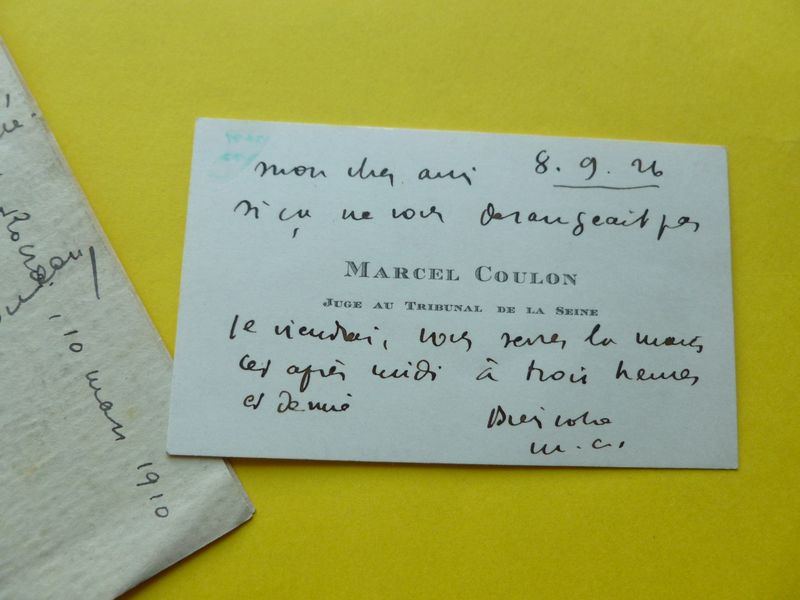 mon cher ami 8.9.26
si ça ne vous derangeait pas
MARCEL COULON
JUGE AU TRIBUNAL DE LA SEINE
Je viendrai, vous serrer la main
cet après midi à trois heures
et demie
Bien votre
m.c.
, 10 mars 1910